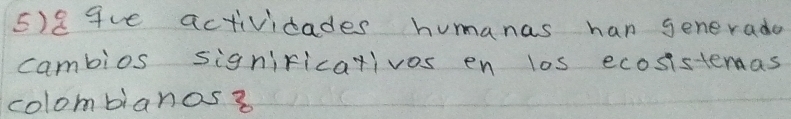 5)¿ que actividades humanas han generado
cambios significativos en los ecosistemas
colombianos?